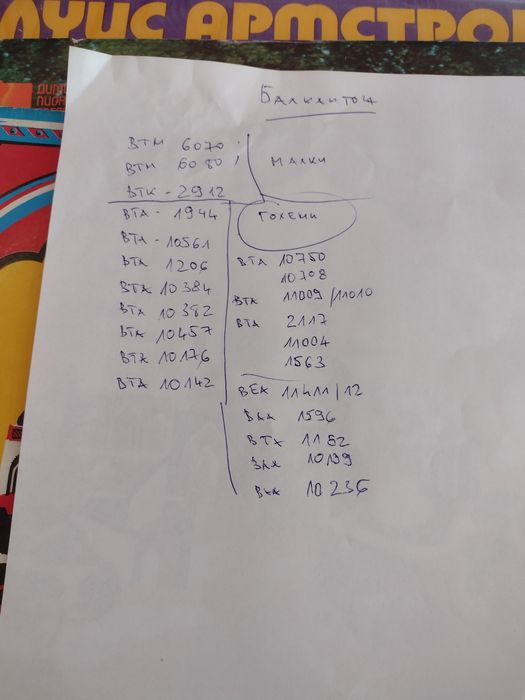 ЛУИС АРМСТРОН
Балкантон
ВТМ 6070
ВТМ 6080
ВТК - 2912
МАЛКИ
ВТА - 1944
ВТА - 10561
ВТА 1206
ВТА 10384
ВТА 10382
ВТА 10457
ВТА 10176
ВТА 10142
ГОЛЕМИ
ВТА 10750
10708
ВТА 11009/11010
ВТА 2117
11004
1563
ВЕА 11411/12
ВАА 1596
ВТА 1182
10139
10236